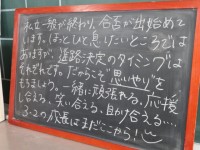 私立一般が終わり、合否が出始めて
います。ほっと一息したいところでは
ありますが、進路決定のタイミングは
それぞれです。だからこそ"思いやり"を
もちましょう。一緒に頑張れる、応援
し合える、笑い合える、助け合える…。
3-2の成長はまだここから！